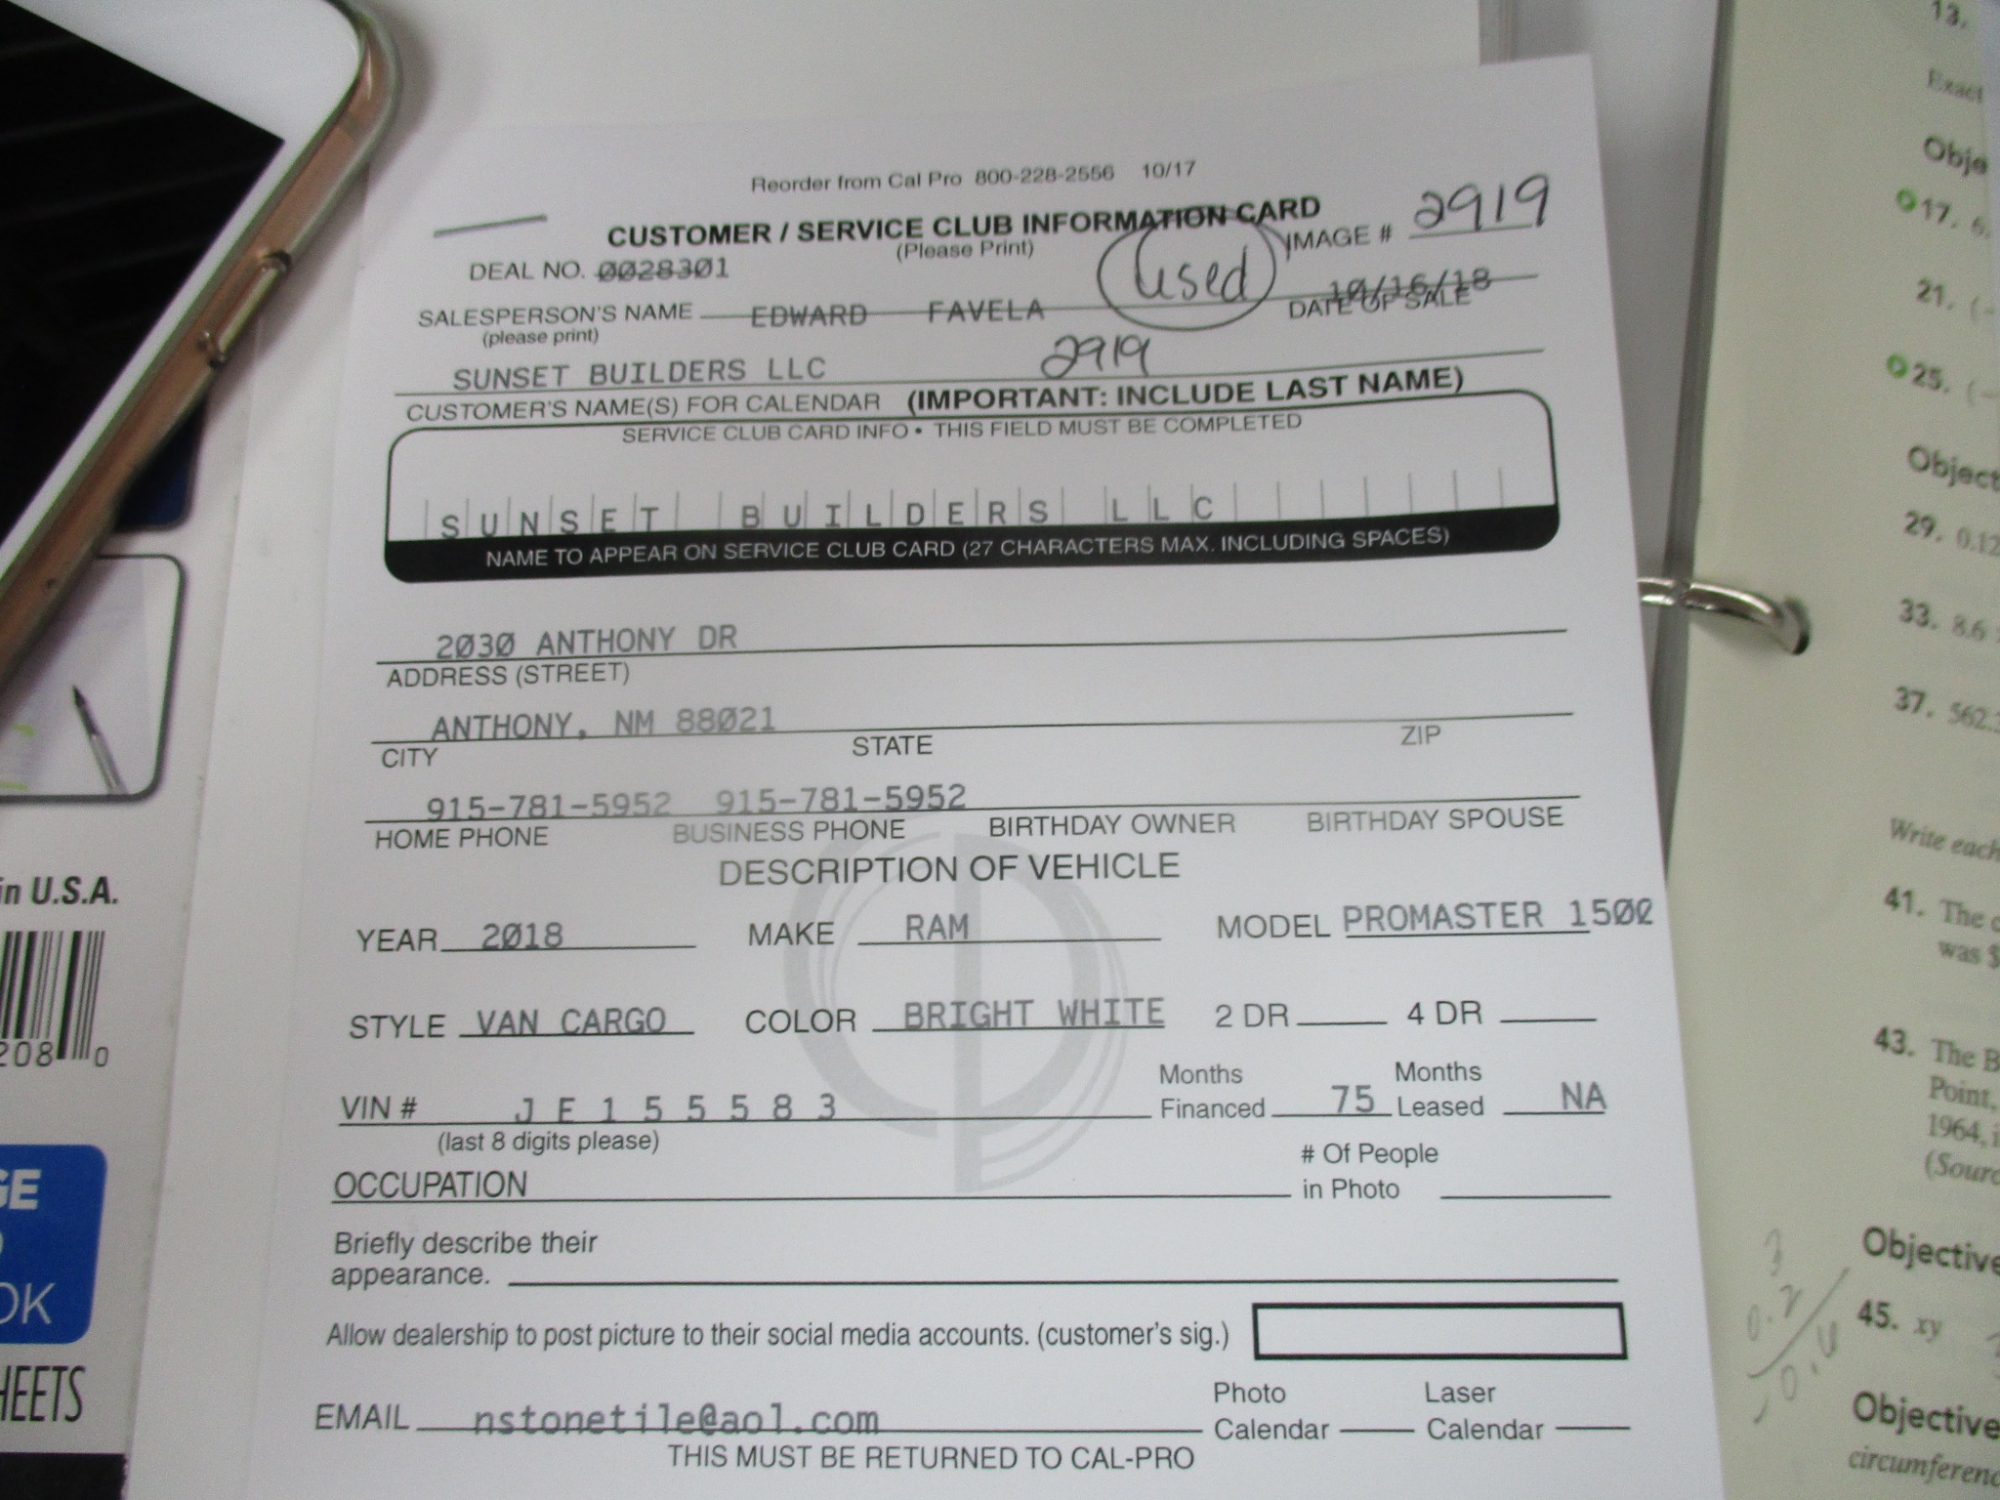 Reorder from Cal Pro 800-228-2556 10/17
CUSTOMER / SERVICE CLUB INFORMATION CARD
(Please Print)
IMAGE # 2919
DEAL NO. 0028301
Used
SALESPERSON'S NAME EDWARD FAVELA
(please print)
10/16/18
DATE OF SALE
SUNSET BUILDERS LLC 2919
CUSTOMER'S NAME(S) FOR CALENDAR (IMPORTANT: INCLUDE LAST NAME)
SERVICE CLUB CARD INFO • THIS FIELD MUST BE COMPLETED
SUNSET BUILDERS LLC
NAME TO APPEAR ON SERVICE CLUB CARD (27 CHARACTERS MAX. INCLUDING SPACES)
2030 ANTHONY DR
ADDRESS (STREET)
ANTHONY, NM 88021
CITY STATE ZIP
915-781-5952 915-781-5952
HOME PHONE BUSINESS PHONE BIRTHDAY OWNER BIRTHDAY SPOUSE
DESCRIPTION OF VEHICLE
YEAR 2018 MAKE RAM MODEL PROMASTER 1500
STYLE VAN CARGO COLOR BRIGHT WHITE 2 DR 4 DR
VIN # J E 1 5 5 5 8 3 Months Financed 75 Months Leased NA
(last 8 digits please)
OCCUPATION # Of People in Photo
Briefly describe their
appearance.
Allow dealership to post picture to their social media accounts. (customer's sig.)
EMAIL nstonetile@aol.com Photo Calendar Laser Calendar
THIS MUST BE RETURNED TO CAL-PRO
in U.S.A.
208 0
GE
OK
HEETS
13.
Exact
Obje
17. 6.
21. (-
25. (-
Object
29. 0.12
33. 8.6
37. 562.
Write each
41. The
was $
43. The B
Point,
1964, i
(Sourc
Objective
45. xy
Objective
circumferenc